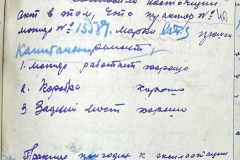 акт в том, что трактор №
мотор № 13584. марки
Капитальный ремонт
1. мотор работает хорошо
2. Коробка хорошо
3 Задний мост хорошо
Трактор пригоден к эксплоатации